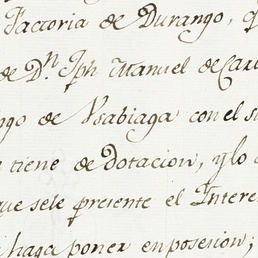 Factoria de Durango, q
de D.n Jph Manuel de
go de Usabiaga con el s
tiene de dotacion, y lo
que se le presente el Intere
haga poner en posesion;